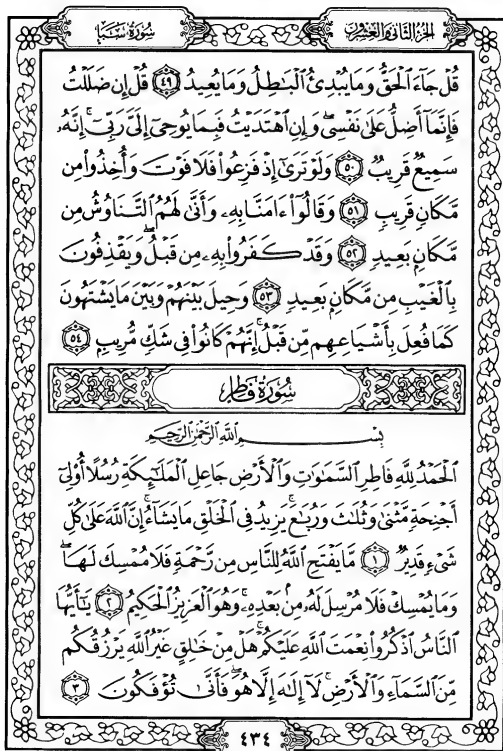 الجزء الثاني والعشرون
سورة سبإ
قُلْ جَآءَ ٱلْحَقُّ وَمَا يُبْدِئُ ٱلْبَٰطِلُ وَمَا يُعِيدُ ٤٩ قُلْ إِن ضَلَلْتُ
فَإِنَّمَآ أَضِلُّ عَلَىٰ نَفْسِى ۖ وَإِنِ ٱهْتَدَيْتُ فَبِمَا يُوحِىٓ إِلَىَّ رَبِّىٓ ۚ إِنَّهُۥ
سَمِيعٌ قَرِيبٌ ٥٠ وَلَوْ تَرَىٰٓ إِذْ فَزِعُوا۟ فَلَا فَوْتَ وَأُخِذُوا۟ مِن
مَّكَانٍ قَرِيبٍ ٥١ وَقَالُوٓا۟ ءَامَنَّا بِهِۦ وَأَنَّىٰ لَهُمُ ٱلتَّنَاوُشُ مِن
مَّكَانٍۭ بَعِيدٍ ٥٢ وَقَدْ كَفَرُوا۟ بِهِۦ مِن قَبْلُ ۖ وَيَقْذِفُونَ
بِٱلْغَيْبِ مِن مَّكَانٍۭ بَعِيدٍ ٥٣ وَحِيلَ بَيْنَهُمْ وَبَيْنَ مَا يَشْتَهُونَ
كَمَا فُعِلَ بِأَشْيَاعِهِم مِّن قَبْلُ ۚ إِنَّهُمْ كَانُوا۟ فِى شَكٍّ مُّرِيبٍۭ ٥٤
سورة فاطر
بِسْمِ ٱللَّهِ ٱلرَّحْمَٰنِ ٱلرَّحِيمِ
ٱلْحَمْدُ لِلَّهِ فَاطِرِ ٱلسَّمَٰوَٰتِ وَٱلْأَرْضِ جَاعِلِ ٱلْمَلَٰٓئِكَةِ رُسُلًا أُو۟لِىٓ
أَجْنِحَةٍ مَّثْنَىٰ وَثُلَٰثَ وَرُبَٰعَ ۚ يَزِيدُ فِى ٱلْخَلْقِ مَا يَشَآءُ ۚ إِنَّ ٱللَّهَ عَلَىٰ كُلِّ
شَىْءٍ قَدِيرٌ ١ مَّا يَفْتَحِ ٱللَّهُ لِلنَّاسِ مِن رَّحْمَةٍ فَلَا مُمْسِكَ لَهَا ۖ
وَمَا يُمْسِكْ فَلَا مُرْسِلَ لَهُۥ مِنۢ بَعْدِهِۦ ۚ وَهُوَ ٱلْعَزِيزُ ٱلْحَكِيمُ ٢ يَٰٓأَيُّهَا
ٱلنَّاسُ ٱذْكُرُوا۟ نِعْمَتَ ٱللَّهِ عَلَيْكُمْ ۚ هَلْ مِنْ خَٰلِقٍ غَيْرُ ٱللَّهِ يَرْزُقُكُم
مِّنَ ٱلسَّمَآءِ وَٱلْأَرْضِ ۚ لَآ إِلَٰهَ إِلَّا هُوَ ۖ فَأَنَّىٰ تُؤْفَكُونَ ٣
٤٣٤